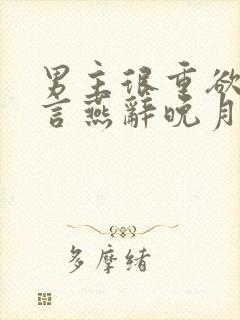 男主很重欲
言燕辭晚月
多摩绪